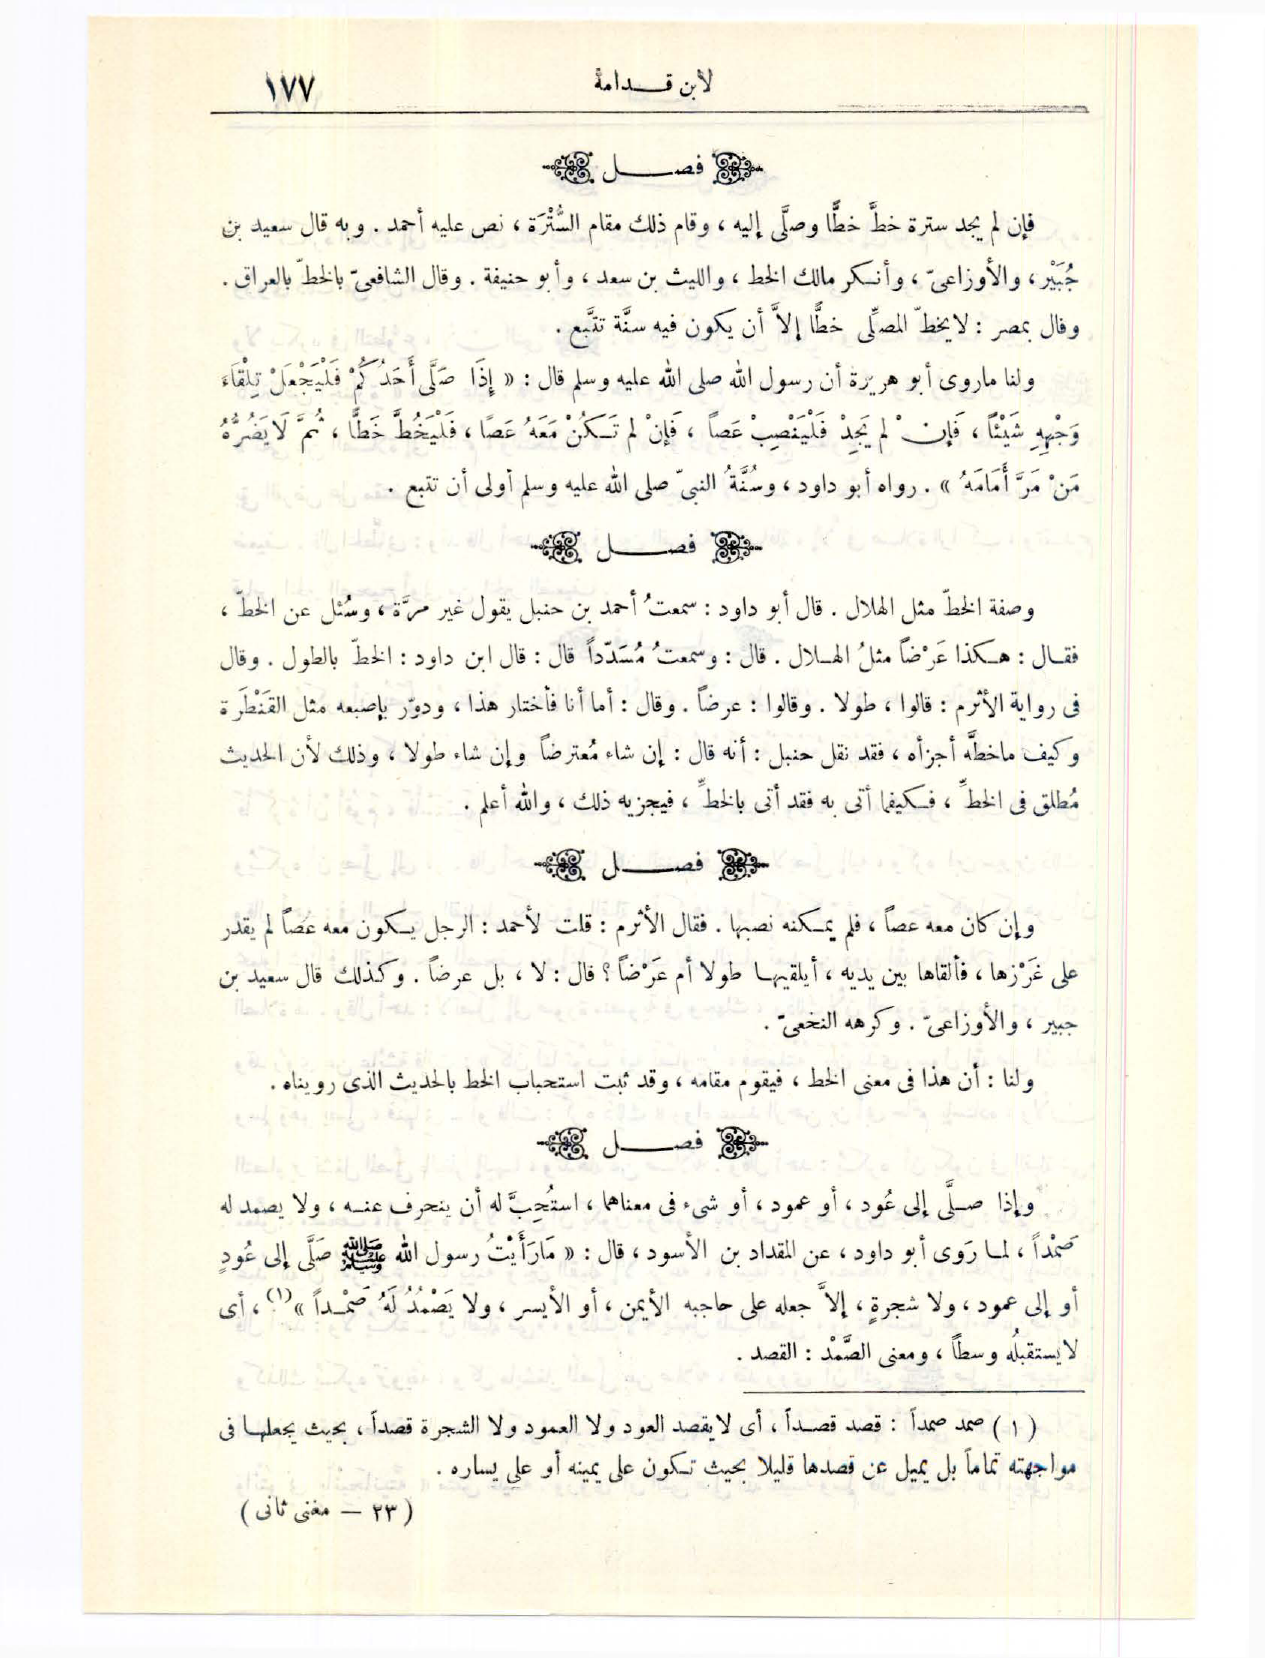 لابن قدامة ١٧٧
فصل
فإن لم يجد سترة خطَّ خطًّا وصلَّى إليه ، وقام ذلك مقام السُّتْرَة ، نص عليه أحمد . وبه قال سعيد بن
جُبَيْر ، والأوزاعىّ ، وأنكر مالك الخط ، والليث بن سعد ، وأبو حنيفة . وقال الشافعىّ بالخطّ بالعراق .
وقال بمصر : لا يخطّ المصلِّى خطًّا إلاَّ أن يكون فيه سنَّة تتَّبع .
ولنا ماروى أبو هريرة أن رسول الله صلى الله عليه وسلم قال : « إِذَا صَلَّى أَحَدُكُمْ فَلْيَجْعَلْ تِلْقَاءَ
وَجْهِهِ شَيْئاً ، فَإِنْ لم يَجِدْ فَلْيَنْصِبْ عَصاً ، فَإِنْ لم تَكُنْ مَعَهُ عَصًا ، فَلْيَخُطَّ خَطًّا ، ثُمَّ لَا يَضُرُّهُ
مَنْ مَرَّ أَمَامَهُ » . رواه أبو داود ، وسُنَّةُ النبىّ صلى الله عليه وسلم أولى أن تتبع .
فصل
وصفة الخطّ مثل الهلال . قال أبو داود : سمعتُ أحمد بن حنبل يقول غير مرَّة ، وسُئل عن الخطّ ،
فقال : هكذا عَرْضاً مثلُ الهلال . قال : وسمعتُ مُسَدّداً قال : قال ابن داود : الخطّ بالطول . وقال
فى رواية الأثرم : قالوا ، طولا . وقالوا : عرضاً . وقال : أما أنا فأختار هذا ، ودوّر بإصبعه مثل القَنْطَرَة
وكيف ماخطَّه أجزأه ، فقد نقل حنبل : أنه قال : إن شاء مُعترضاً وإن شاء طولا ، وذلك لأن الحديث
مُطلق فى الخطِّ ، فكيفما أتى به فقد أتى بالخطِّ ، فيجزيه ذلك ، والله أعلم .
فصل
وإن كان معه عصاً ، فلم يمكنه نصبها . فقال الأثرم : قلت لأحمد : الرجل يكون معه عصاً لم يقدر
على غَرْزها ، فألقاها بين يديه ، أيلقيها طولا أم عَرْضاً ؟ قال : لا ، بل عرضاً . وكذلك قال سعيد بن
جبير ، والأوزاعىّ . وكرهه النخعىّ .
ولنا : أن هذا فى معنى الخط ، فيقوم مقامه ، وقد ثبت استحباب الخط بالحديث الذى رويناه .
فصل
وإذا صلَّى إلى عُود ، أو عمود ، أو شىء فى معناهما ، استُحِبَّ له أن ينحرف عنه ، ولا يصمد له
صَمْداً ، لما رَوى أبو داود ، عن المقداد بن الأسود ، قال : « مَارَأَيْتُ رسول الله ﷺ صَلَّى إلى عُودٍ
أو إلى عمود ، ولا شجرةٍ ، إلاَّ جعله على حاجبه الأيمن ، أو الأيسر ، ولا يَصْمُدُ لَهُ صَمْداً »(١) ، أى
لايستقبلُه وسطاً ، ومعنى الصَّمْد : القصد .
(١) صمد صمداً : قصد قصداً ، أى لايقصد العود ولا العمود ولا الشجرة قصداً ، بحيث يجعلها فى
مواجهته تماماً بل يميل عن قصدها قليلا بحيث تكون على يمينه أو على يساره .
( ٢٣ — مغنى ثانى )